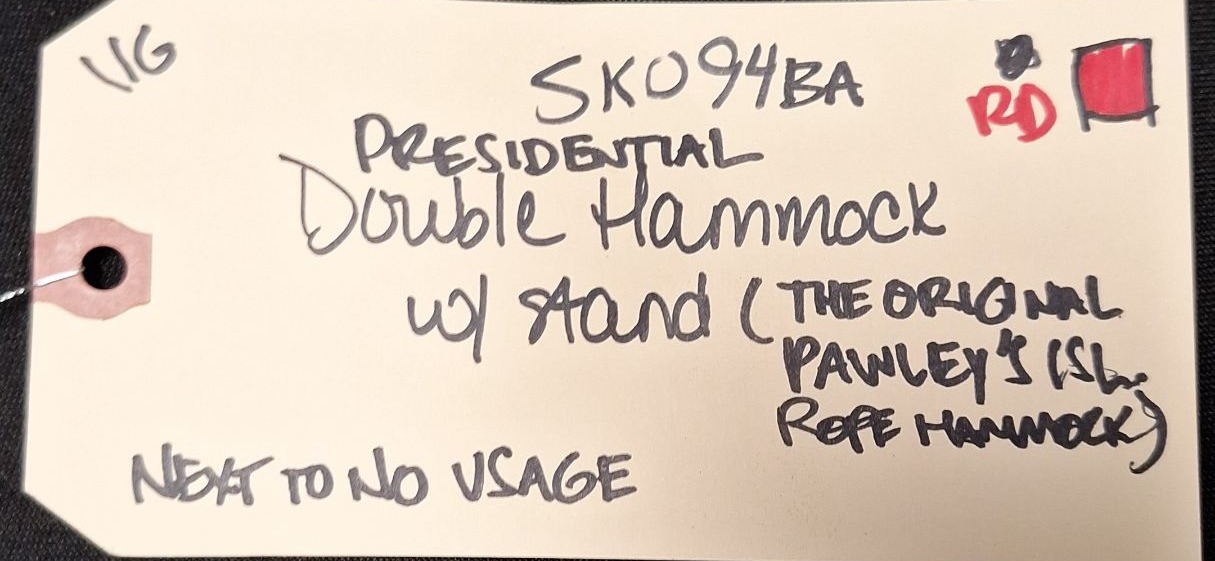 VG
SK094BA
RD
PRESIDENTIAL
Double Hammock
w/ stand (THE ORIGINAL
PAWLEY'S ISL.
ROPE HAMMOCK)
NEXT TO NO USAGE